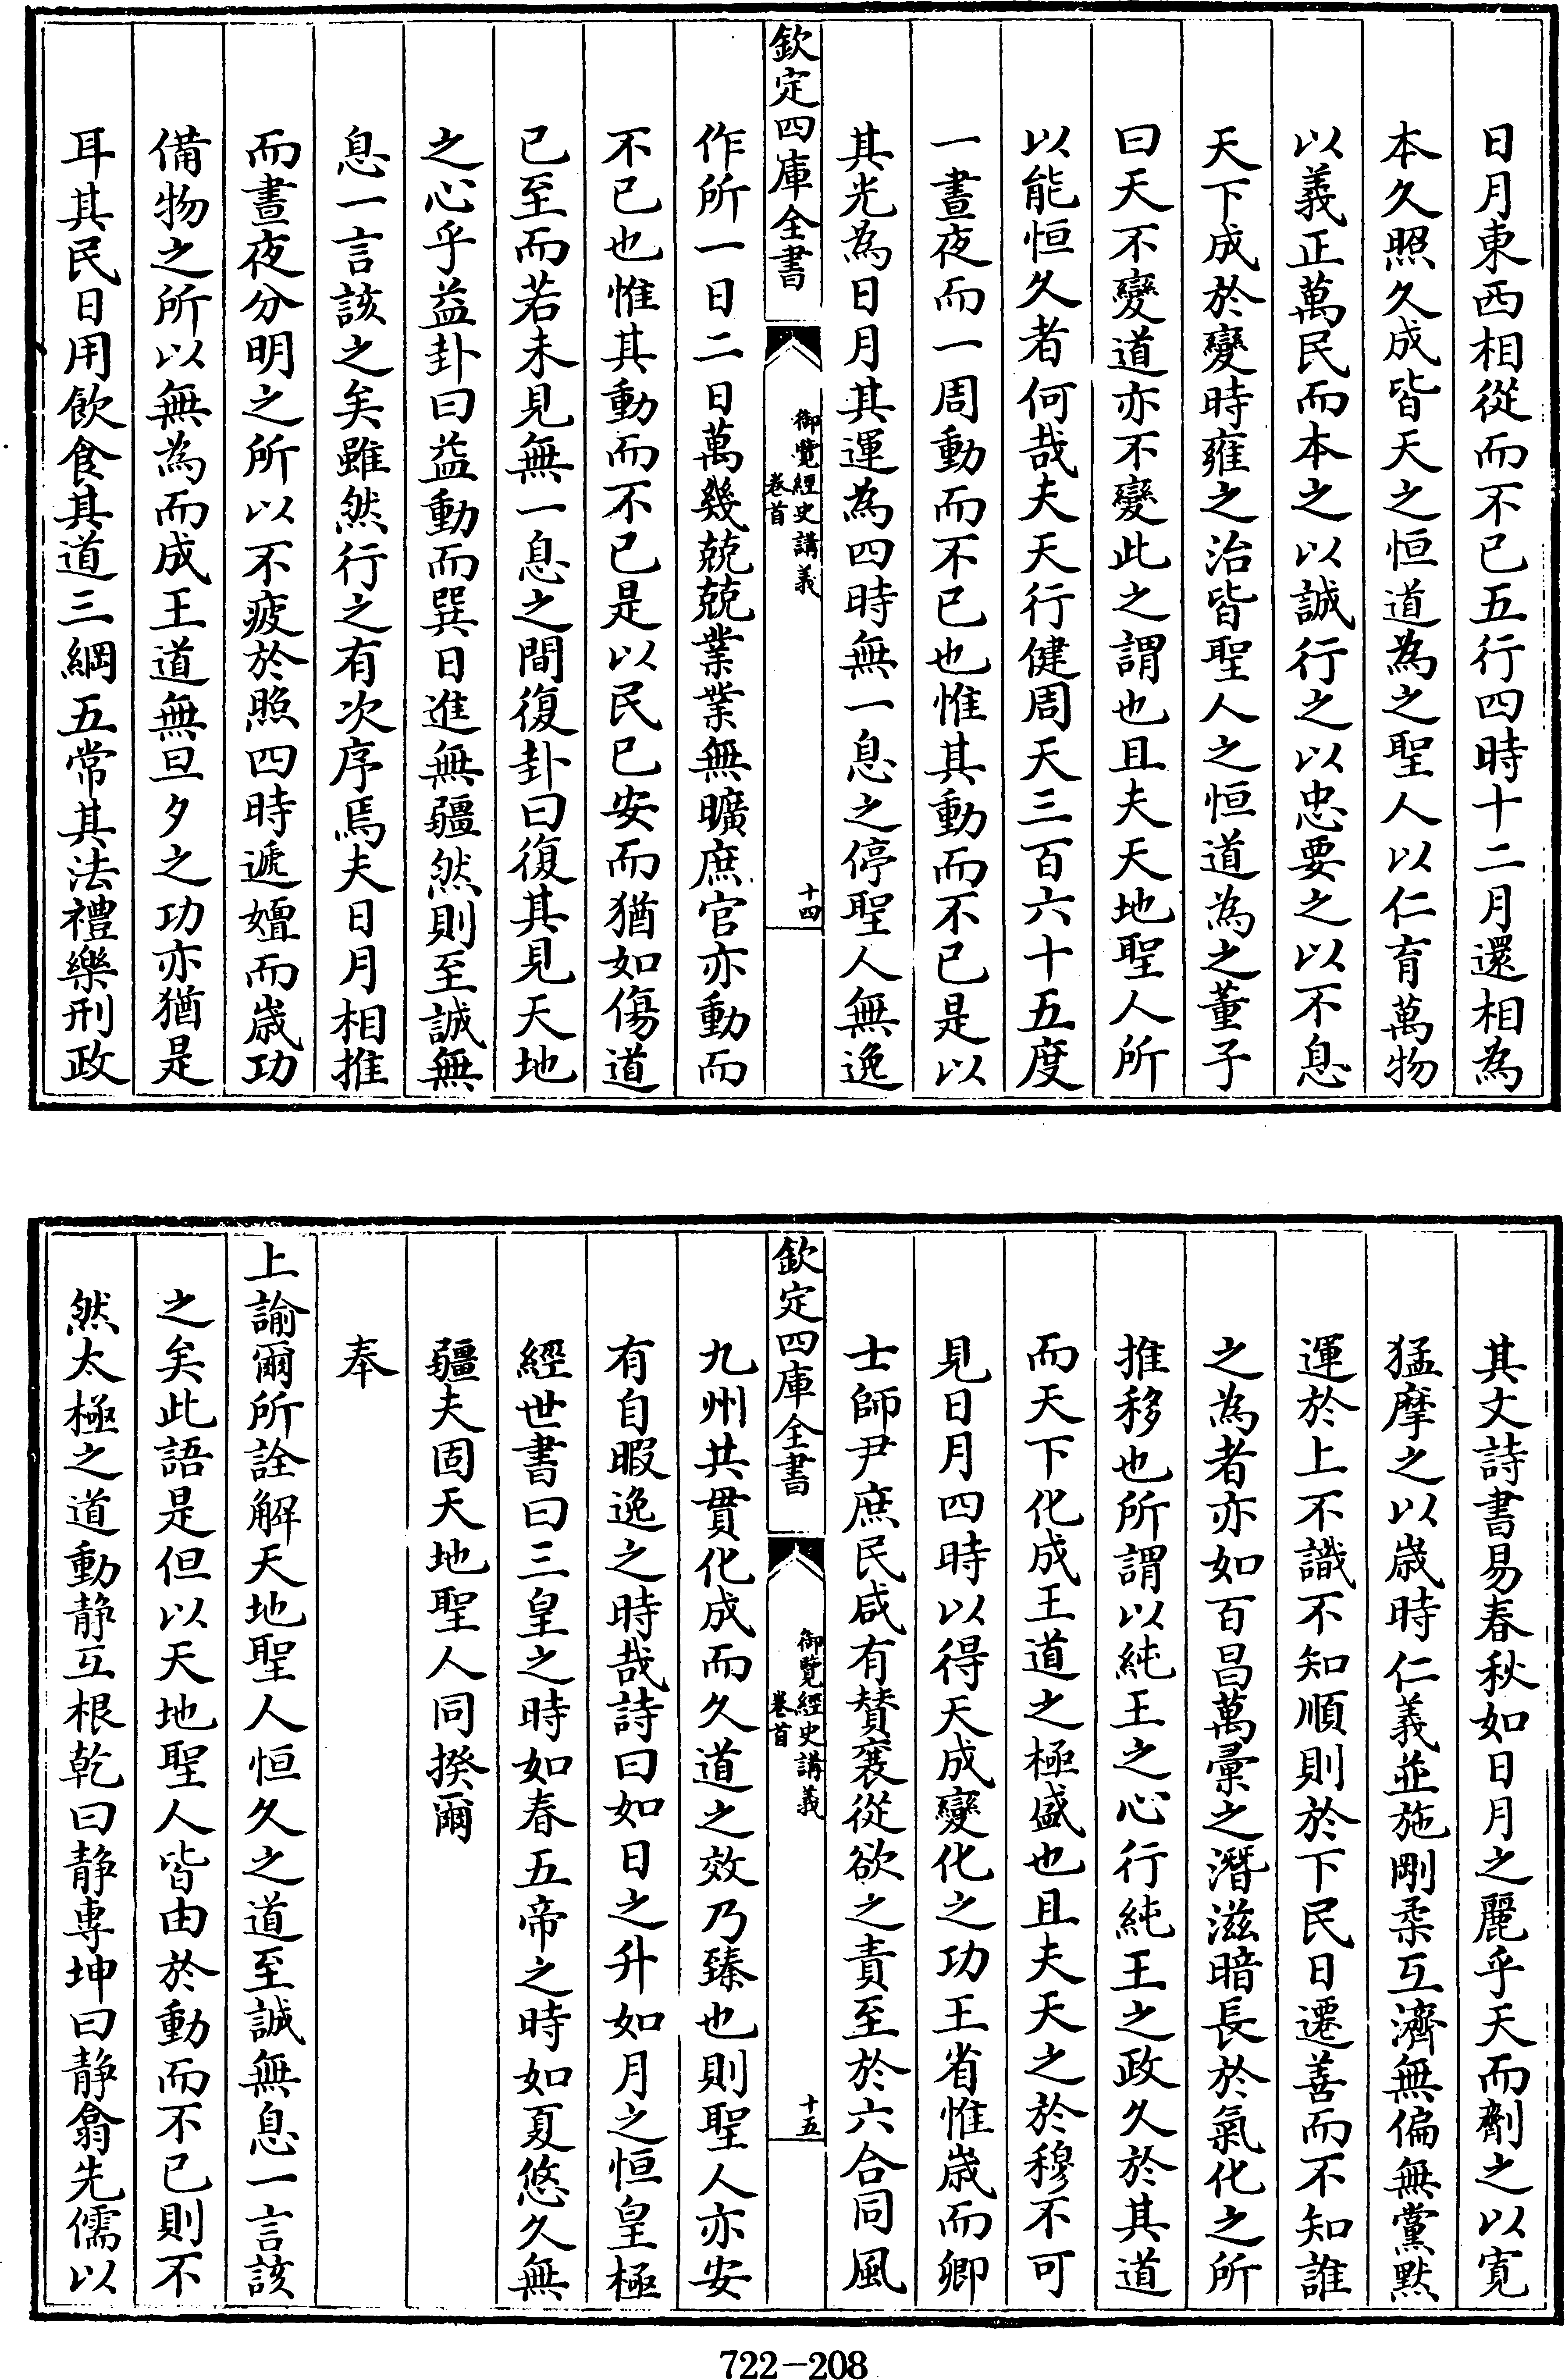 日月東西相從而不已五行四時十二月還相為
本久照久成皆天之恒道為之聖人以仁育萬物
以義正萬民而本之以誠行之以忠要之以不息
天下成於變時雍之治皆聖人之恒道為之董子
曰天不變道亦不變此之謂也且夫天地聖人所
以能恒久者何哉夫天行健周天三百六十五度
一晝夜而一周動而不已也惟其動而不已是以
其光為日月其運為四時無一息之停聖人無逸
欽定四庫全書
御覽經史講義
卷首
十四
作所一日二日萬幾兢兢業業無曠庶官亦動而
不已也惟其動而不已是以民已安而猶如傷道
已至而若未見無一息之間復卦曰復其見天地
之心乎益卦曰益動而巽日進無疆然則至誠無
息一言該之矣雖然行之有次序焉夫日月相推
而晝夜分明之所以不疲於照四時遞嬗而歲功
備物之所以無為而成王道無旦夕之功亦猶是
耳其民日用飲食其道三綱五常其法禮樂刑政
其文詩書易春秋如日月之麗乎天而劑之以寬
猛摩之以歲時仁義並施剛柔互濟無偏無黨默
運於上不識不知順則於下民日遷善而不知誰
之為者亦如百昌萬彙之潛滋暗長於氣化之所
推移也所謂以純王之心行純王之政久於其道
而天下化成王道之極盛也且夫天之於穆不可
見日月四時以得天成變化之功王省惟歲而卿
士師尹庶民咸有贊襄從欲之責至於六合同風
欽定四庫全書
御覽經史講義
卷首
十五
九州共貫化成而久道之效乃臻也則聖人亦安
有自暇逸之時哉詩曰如日之升如月之恒皇極
經世書曰三皇之時如春五帝之時如夏悠久無
疆夫固天地聖人同揆爾
奉
上諭爾所詮解天地聖人恒久之道至誠無息一言該
之矣此語是但以天地聖人皆由於動而不已則不
然太極之道動静互根乾曰静專坤曰静翕先儒以
722-208